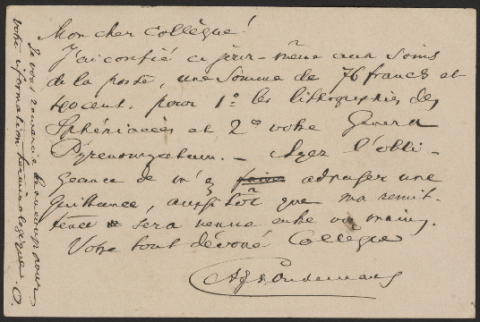 Mon cher Collègue!
J'ai confié ce jour-même aux soins
de la poste, une somme de 76 francs et
cent. pour 1º les lithographies des
Sphériacées et 2º votre Genera
Pyrenomycetum. — Ayez l'obli-
geance de m'y faire adresser une
quittance, aussitôt que ma remit-
tence sera venue entre vos mains.
Votre tout dévoué Collègue
Oudemans
Je vous remercie beaucoup pour
votre information terminologique. O.